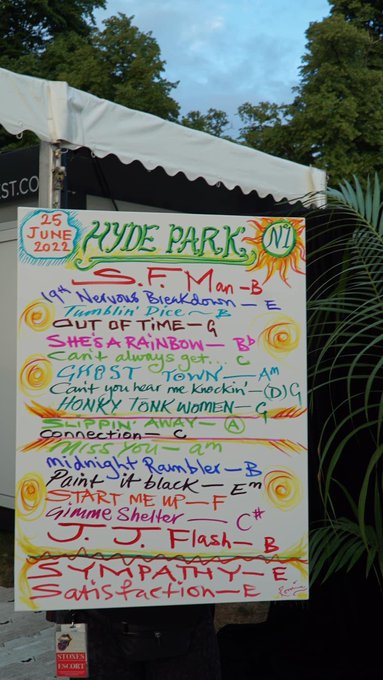 EST.CO
25
JUNE
2022
HYDE PARK, N1
S.F. Man - B
19th Nervous Breakdown - E
Tumblin' Dice - B
OUT OF TIME - G
SHE'S A RAINBOW - Bb
Can't always get... C
GHOST TOWN - Am
Can't you hear me knockin' - (D) G
HONKY TONK WOMEN - G
SLIPPIN' AWAY - A
Connection - C
MISS YOU - am
midnight Rambler - B
Paint it black - Em
START ME UP - F
Gimme Shelter - C#
J. J. Flash - B
SYMPATHY - E
Satisfaction - E
STONES
ESCORT